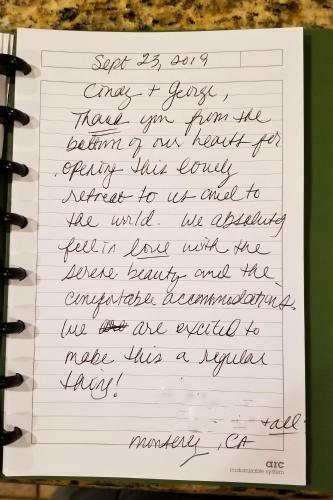 Sept 23, 2019
Cindy + George,
Thank you from the
bottom of our hearts for
opening this lovely
retreat to us and to
the world. We absolutely
fell in love with the
serene beauty and the
comfortable accommodations.
We are excited to
make this a regular
thing!
+ all
Monterey, CA
arc
customizable system